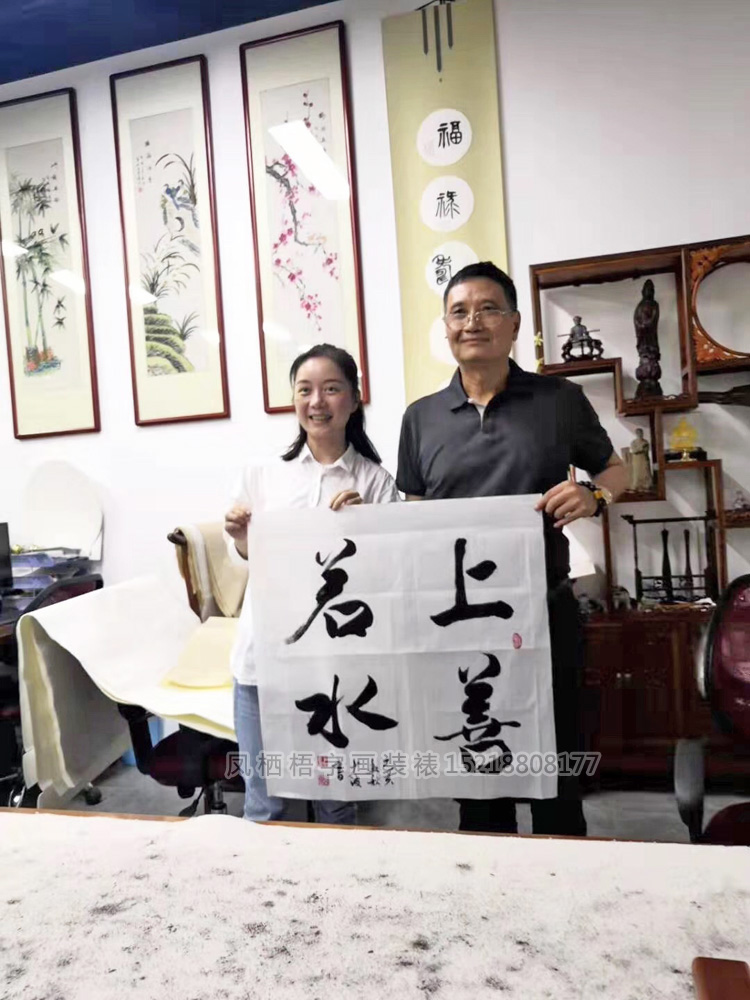 福
祿
壽
上善
若水
凤栖梧字画装裱 15218808177